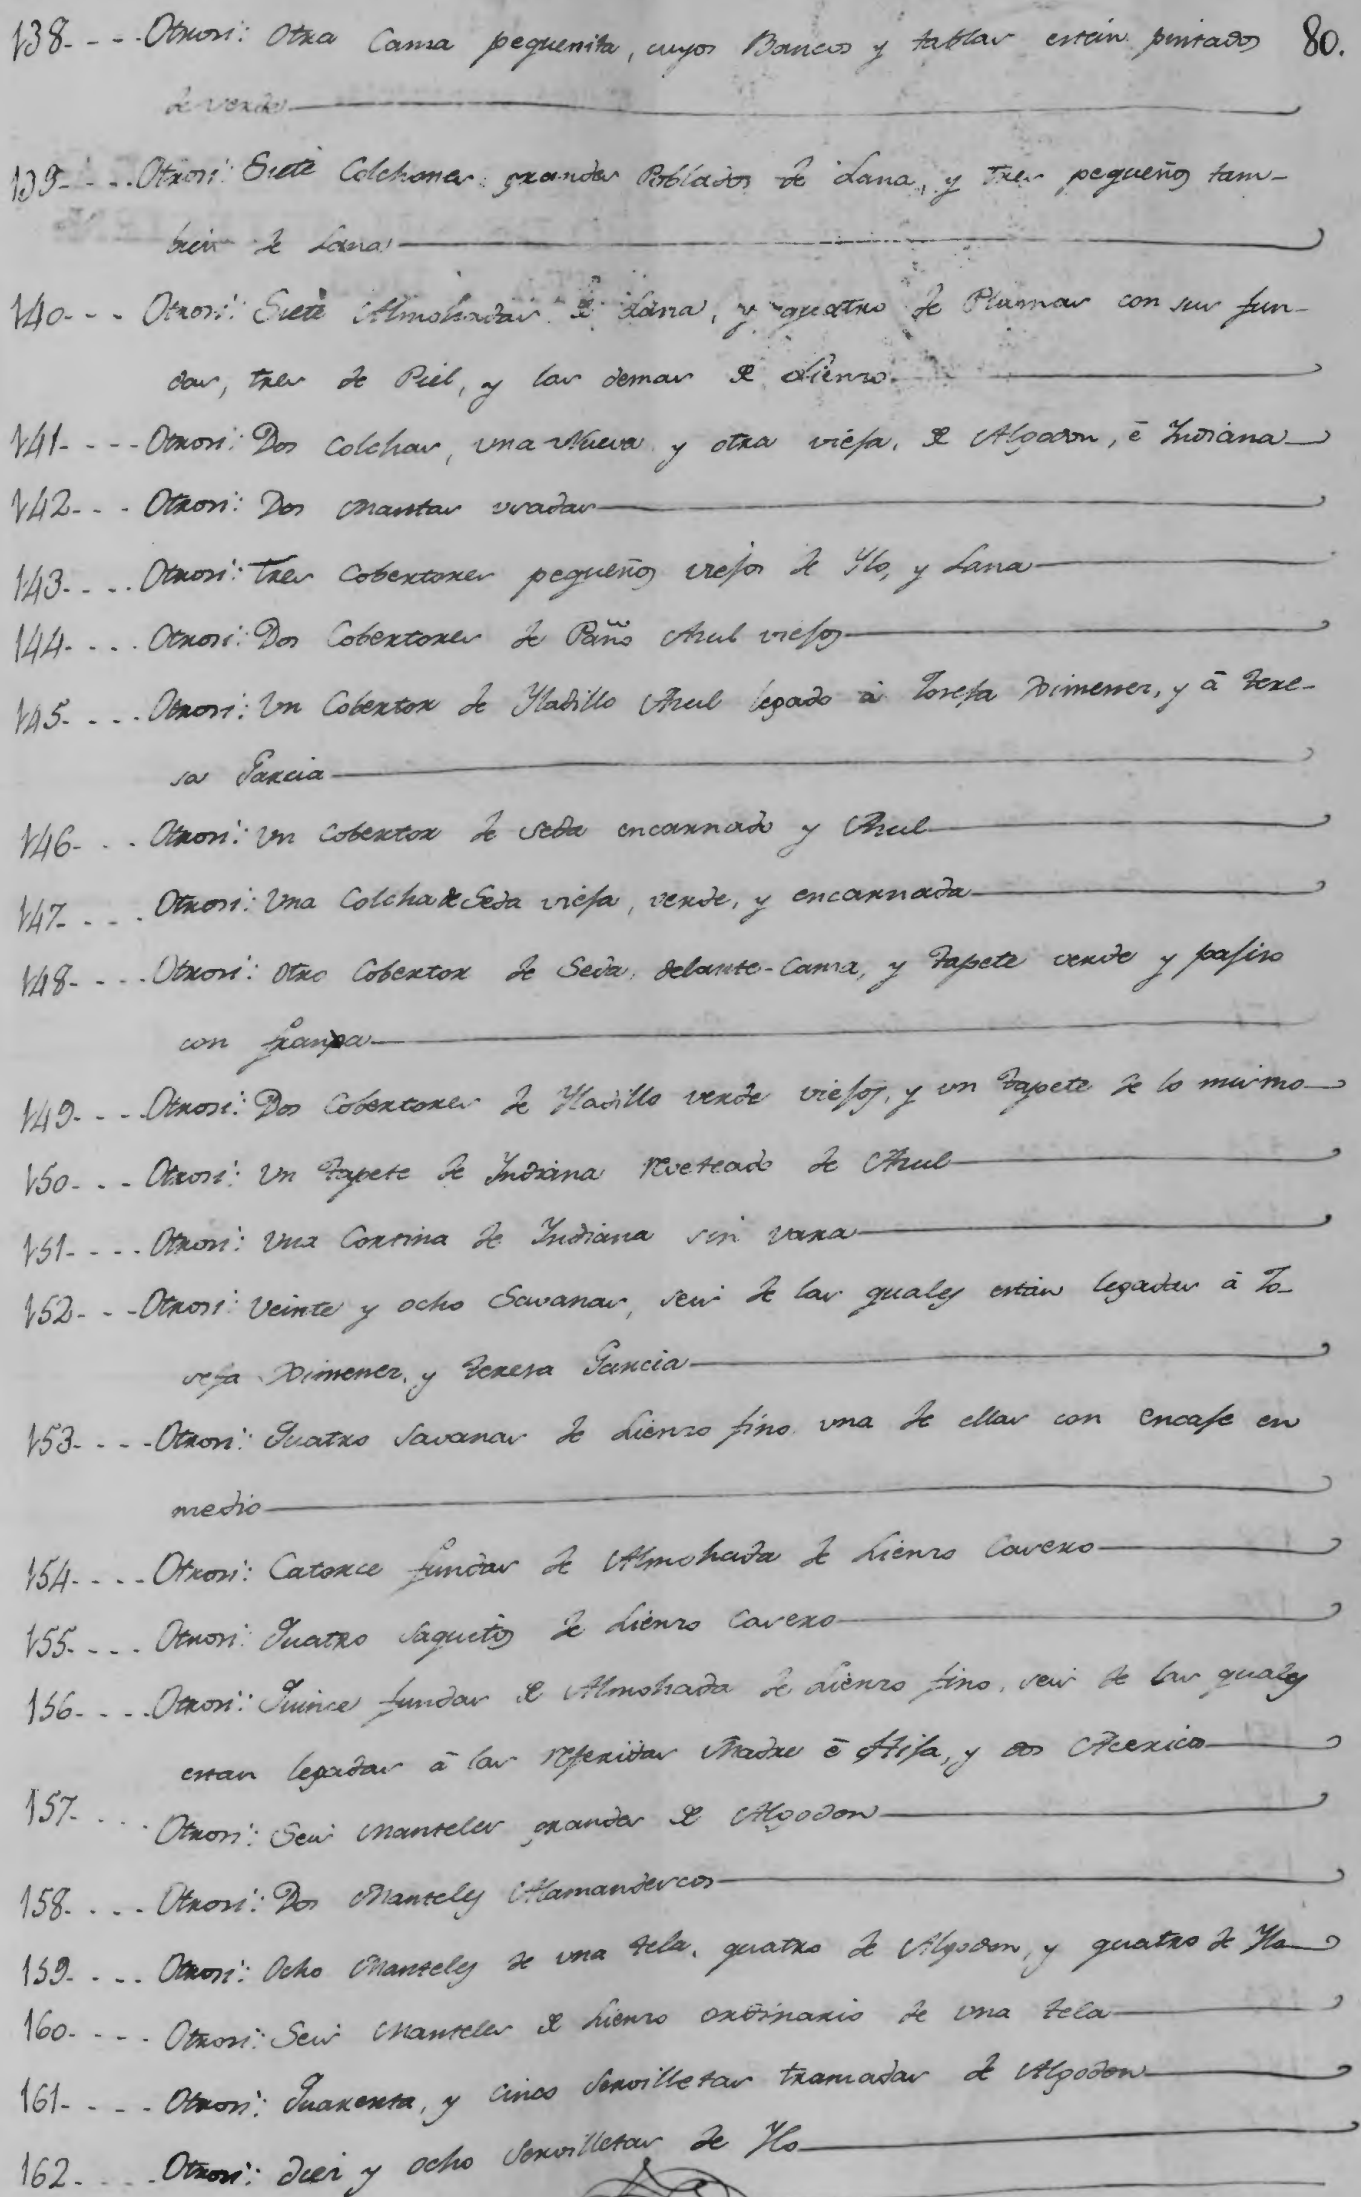 138- - - Otrosi: Otra Cama pequeñita, cuyos Bancos y tablas están pintados 80.
de verde
139- - - - Otrosi: Siete Colchones grandes Poblados de Lana, y tres pequeños tam-
bien de Lana
140- - - Otrosi: Siete Almohadas de Lana, y quatro de Plumas con sus fun-
das, tres de Piel, y las demas de Lienzo
141- - - - Otrosi: Dos Colchas, una Nueva y otra vieja, de Algodon, é Indiana
142- - - Otrosi: Dos Mantas usadas
143- - - - Otrosi: Tres Cobertores pequeños viejos de Ylo, y Lana
144- - - - Otrosi: Dos Cobertores de Paño Azul viejos
145- - - - Otrosi: Un Cobertor de Yladillo Azul legado à Josefa Ximenez, y à Tere-
sa Garcia
146- - - Otrosi: Un Cobertor de seda encarnado y Azul
147- - - - Otrosi: Una Colcha de Seda vieja, verde, y encarnada
148- - - - Otrosi: Otro Cobertor de Seda, delante-Cama, y Tapete verde y pajiso
con franja
149- - - Otrosi: Dos Cobertores de Yladillo verde viejos, y un Tapete de lo mismo
150- - - Otrosi: Un Tapete de Indiana riveteado de Azul
151- - - - Otrosi: Una Cortina de Indiana sin vara
152- - - Otrosi: Veinte y ocho Savanas, seis de las quales están legadas à Jo-
sefa Ximenez, y Teresa Garcia
153- - - - Otrosi: Quatro Savanas de Lienzo fino una de ellas con encaje en
medio
154- - - - Otrosi: Catorce fundas de Almohada de Lienzo Casero
155- - - - Otrosi: Quatro Saquetos de Lienzo Casero
156- - - - Otrosi: Quince fundas de Almohada de Lienzo fino, seis de las quales
estan legadas à las referidas Madre é Hija, y dos Acericos
157- - - - Otrosi: Seis Manteles grandes de Algodon
158- - - - Otrosi: Dos Manteles Alamandescos
159- - - - Otrosi: Ocho Manteles de una tela, quatro de Algodon, y quatro de Ylo
160- - - - Otrosi: Seis Manteles de Lienzo ordinario de una tela
161- - - - Otrosi: Quarenta, y cinco Servilletas tramadas de Algodon
162- - - - Otrosi: Diez y ocho Servilletas de Ylo